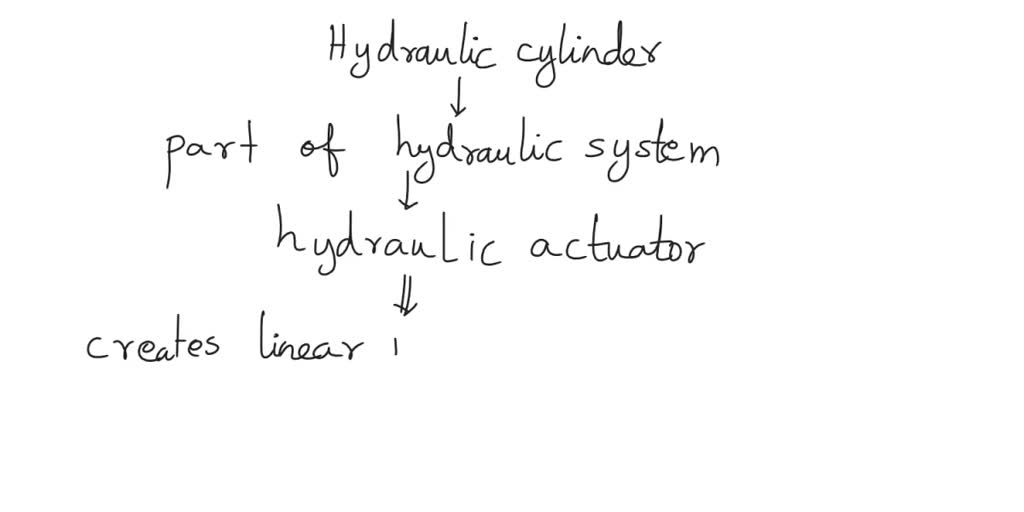 Hydraulic cylinder
part of hydraulic system
hydraulic actuator
creates linear